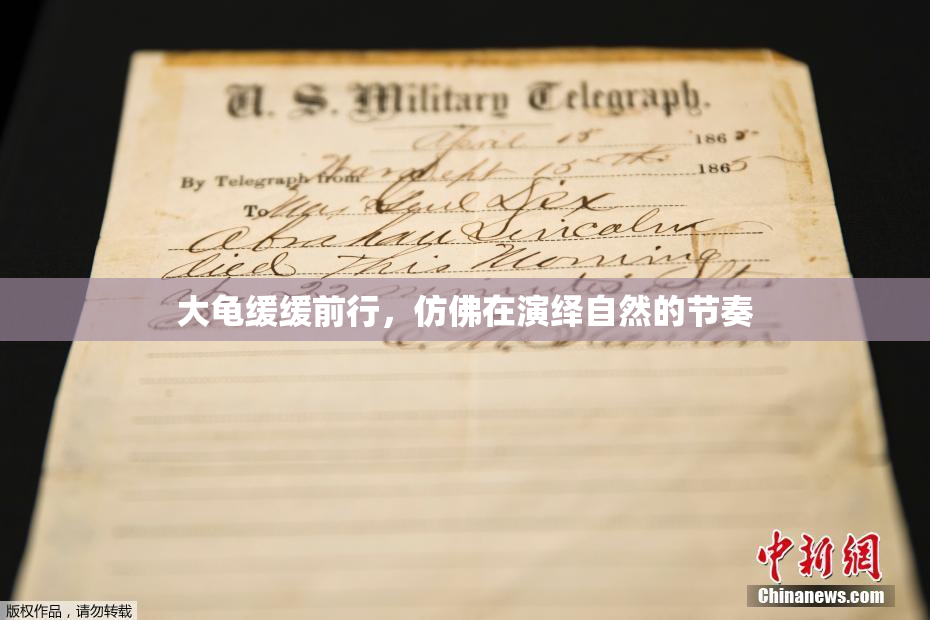 U. S. Military Telegraph.
April 15 1865
By Telegraph from War Dept 15th 1865
To Maj Genl Dix
Abraham Lincoln
died This Morning
at 22 minutes after
大龟缓缓前行，仿佛在演绎自然的节奏
E. M. Stanton
中新网
Chinanews.com
版权作品，请勿转载